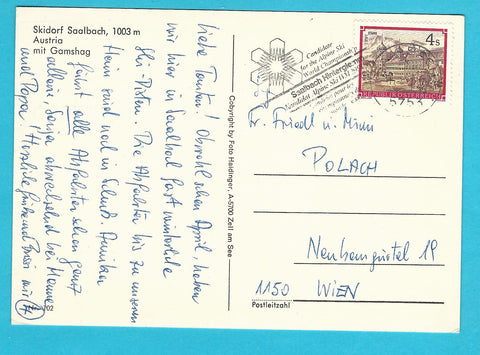 Skidorf Saalbach, 1003 m
Austria
mit Gamshag
Liebe Tanten! Obwohl schon April, haben
wir hier in Saalbach fast winterliche
Ski-Pisten. Die Abfahrten bis zu unserem
Heim sind noch in Schuß. Annika
fährt alle Abfahrten schon ganz
allein, Sonja abwechselnd bei Mama
und Papa. Herzliche Grüße und Bussi
Copyright by Foto Haidinger, A-5700 Zell am See
Candidate
for the Alpine Ski
World Championship
Saalbach Hinterglemm
Kandidat Alpine Ski WM
5753
4 S
REPUBLIK ÖSTERREICH
Fr. Friedl u. Minni
POLACH
Neubaugürtel 19
1150 WIEN
Postleitzahl